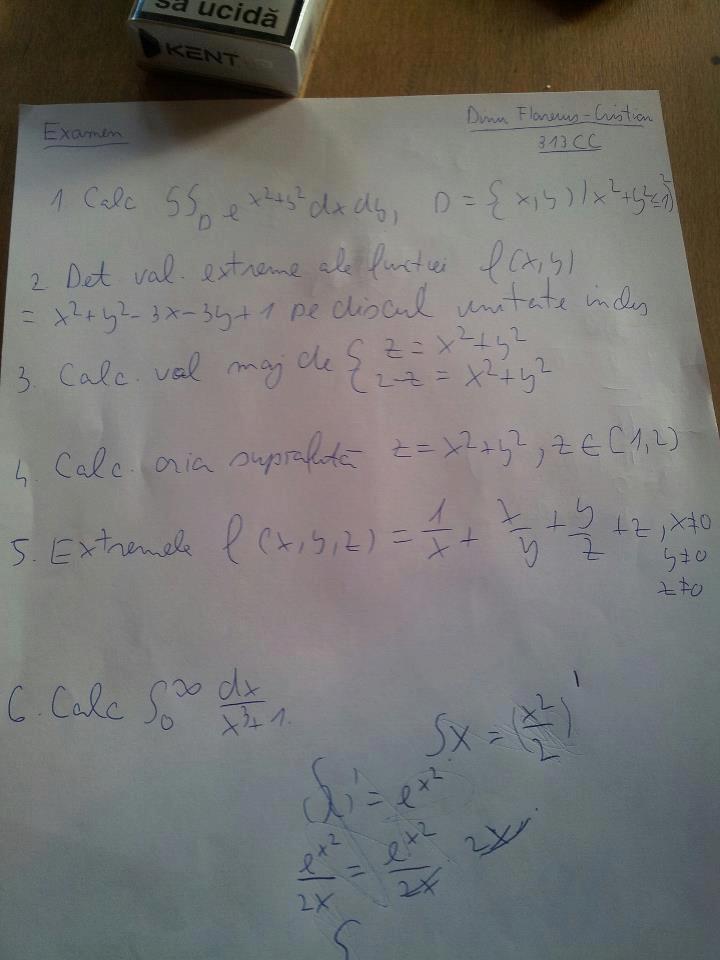 să ucidă
KENT
Examen
313CC
1. Calc ∫∫_D e^{x²+y²} dx dy, D = {x,y) / x²+y²≤1}
2. Det val. extreme ale funcției f(x,y)
= x²+y²-3x-3y+1 pe discul unitate
3. Calc. val de { z = x²+y²
{ 2-z = x²+y²
4. Calc. aria suprafață z = x²+y², z ∈ (1,2)
5. Extremele f(x,y,z) = 1/x + x/y + y/z + z, x≠0
y≠0
z≠0
6. Calc ∫_0^∞ dx/(x³+1).
∫x = (x²/2)'
( )' = e^{x²}
e^{x²}/2x = e^{x²}/2x 2x
∫